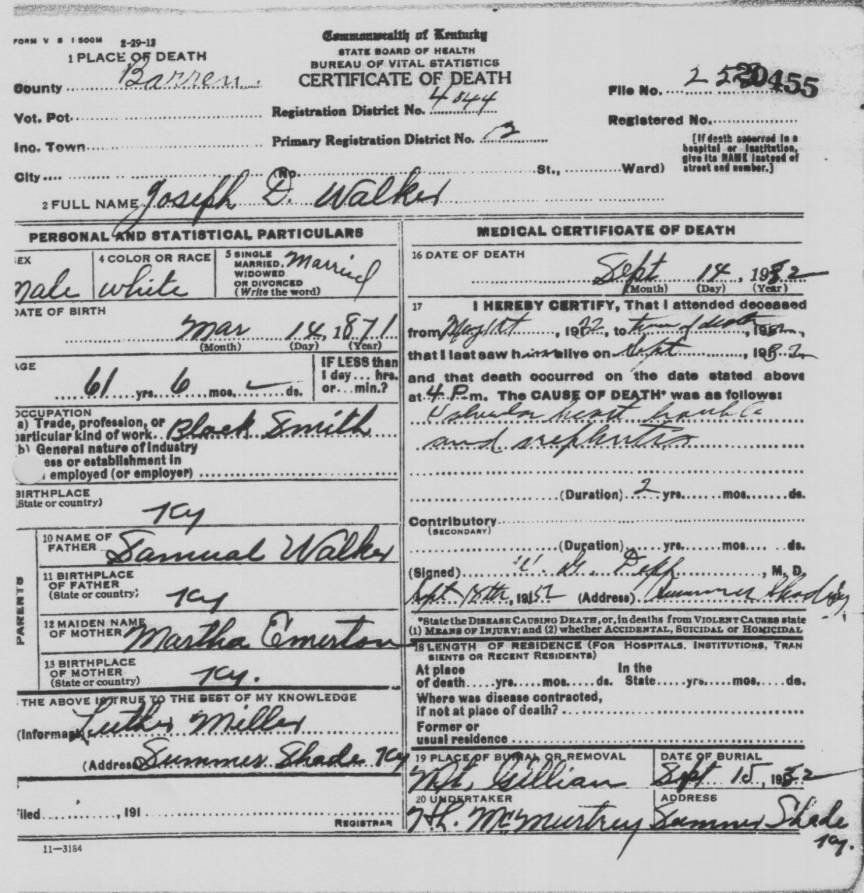 FORM V S 1 500M 2-29-12
Commonwealth of Kentucky
STATE BOARD OF HEALTH
BUREAU OF VITAL STATISTICS
CERTIFICATE OF DEATH
1 PLACE OF DEATH
County Barren.
Vot. Pct.
Inc. Town
City (No. St., Ward)
Registration District No. 4044
Primary Registration District No.
File No. 20455
Registered No.
[If death occurred in a
hospital or institution,
give its NAME instead of
street and number.]
2 FULL NAME Joseph D. Walker
PERSONAL AND STATISTICAL PARTICULARS
EX
male
4 COLOR OR RACE
white
5 SINGLE
MARRIED,
WIDOWED
OR DIVORCED
(Write the word)
Married
DATE OF BIRTH
Mar 14, 1871
(Month) (Day) (Year)
AGE
61 yrs. 6 mos. ds.
IF LESS than
1 day... hrs.
or... min.?
OCCUPATION
a) Trade, profession, or
particular kind of work Black Smith
b) General nature of Industry
ess or establishment in
employed (or employer)
BIRTHPLACE
(State or country)
Ky
PARENTS
10 NAME OF
FATHER Samual Walker
11 BIRTHPLACE
OF FATHER
(State or country)
Ky
12 MAIDEN NAME
OF MOTHER Martha Emerton
13 BIRTHPLACE
OF MOTHER
(State or country)
Ky.
THE ABOVE IS TRUE TO THE BEST OF MY KNOWLEDGE
(Informant Luther Miller
(Address Summer Shade Ky
Filed , 191
REGISTRAR
11—3184
MEDICAL CERTIFICATE OF DEATH
16 DATE OF DEATH
Sept 14, 1932
(Month) (Day) (Year)
17 I HEREBY CERTIFY, That I attended deceased
from May 1st, 1932, to time of death, 1932,
that I last saw him alive on Sept, 1932
and that death occurred on the date stated above
at 4 P m. The CAUSE OF DEATH* was as follows:
Valvular heart trouble
and nephritis
(Duration) 2 yrs. mos. ds.
Contributory
(SECONDARY)
(Duration) yrs. mos. ds.
(Signed) Depp, M, D.
Sept 15th, 1932 (Address) Summer Shade Ky
*State the DISEASE CAUSING DEATH, or, in deaths from VIOLENT CAUSES state
(1) MEANS OF INJURY; and (2) whether ACCIDENTAL, SUICIDAL OR HOMICIDAL
18 LENGTH OF RESIDENCE (FOR HOSPITALS, INSTITUTIONS, TRAN
SIENTS OR RECENT RESIDENTS)
At place In the
of death yrs. mos. ds. State yrs. mos. ds.
Where was disease contracted,
if not at place of death?
Former or
usual residence
19 PLACE OF BURIAL OR REMOVAL
Mt. Gillian
DATE OF BURIAL
Sept 15, 1932
20 UNDERTAKER
H. McMurtrey
ADDRESS
Summer Shade
Ky.